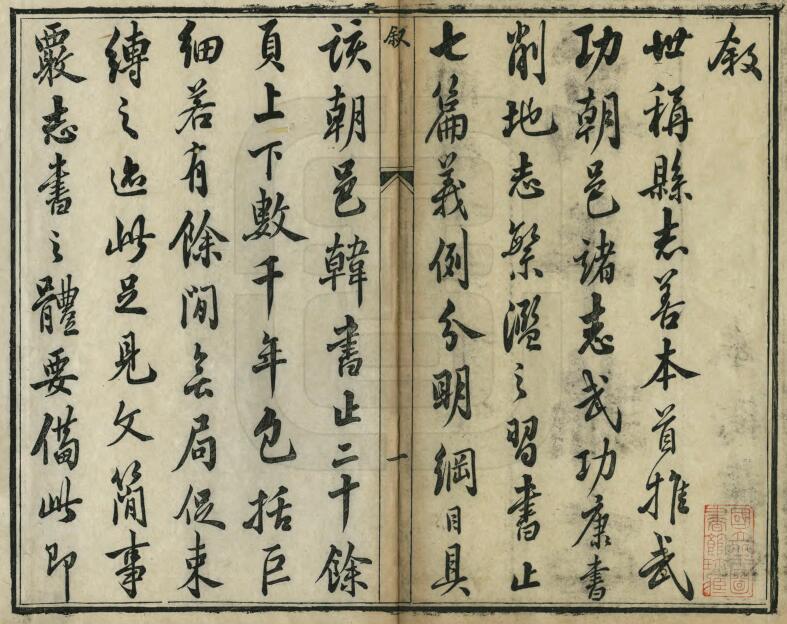 叙
世稱縣志善本首推武
功朝邑諸志武功康書
削地志繁濫之習書止
七篇義例分明綱目具
叙
一
該朝邑韓書止二十餘
頁上下數千年包括巨
細若有餘閒無局促束
縛之迹此足見文簡事
覈志書之體要備此即